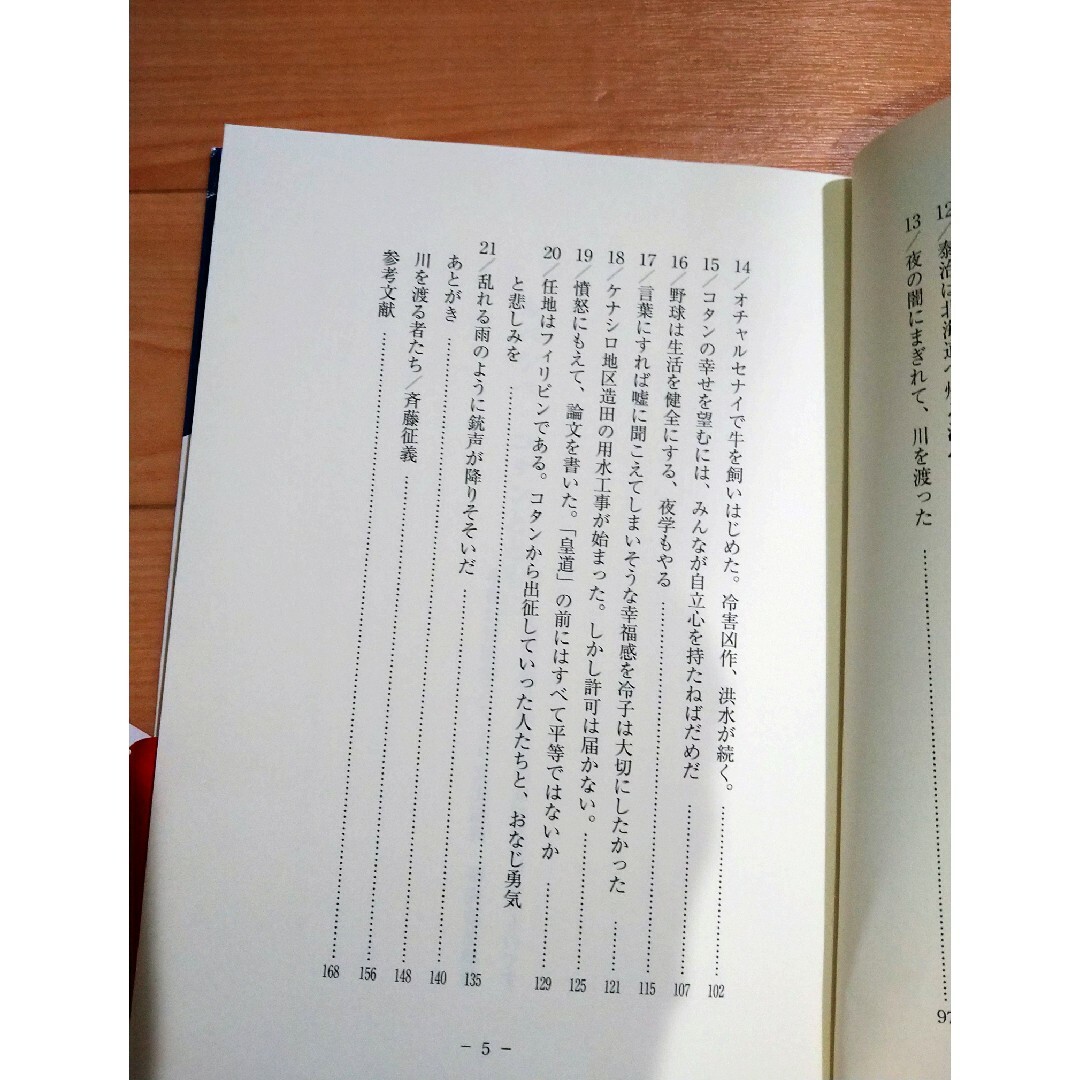 12／泰治は北海道へ
13／夜の闇にまぎれて、川を渡った……………………97
14／オチャルセナイで牛を飼いはじめた。冷害凶作、洪水が続く。……………102
15／コタンの幸せを望むには、みんなが自立心を持たねばだめだ……………107
16／野球は生活を健全にする、夜学もやる……………………115
17／言葉にすれば嘘に聞こえてしまいそうな幸福感を冷子は大切にしたかった……121
18／ケナシロ地区造田の用水工事が始まった。しかし許可は届かない。…………125
19／憤怒にもえて、論文を書いた。「皇道」の前にはすべて平等ではないか………129
20／任地はフィリピンである。コタンから出征していった人たちと、おなじ勇気
と悲しみを……………………………………135
21／乱れる雨のように銃声が降りそそいだ……………………140
あとがき……………………………………148
川を渡る者たち／斉藤征義……………………………156
参考文献……………………………………168
－5－